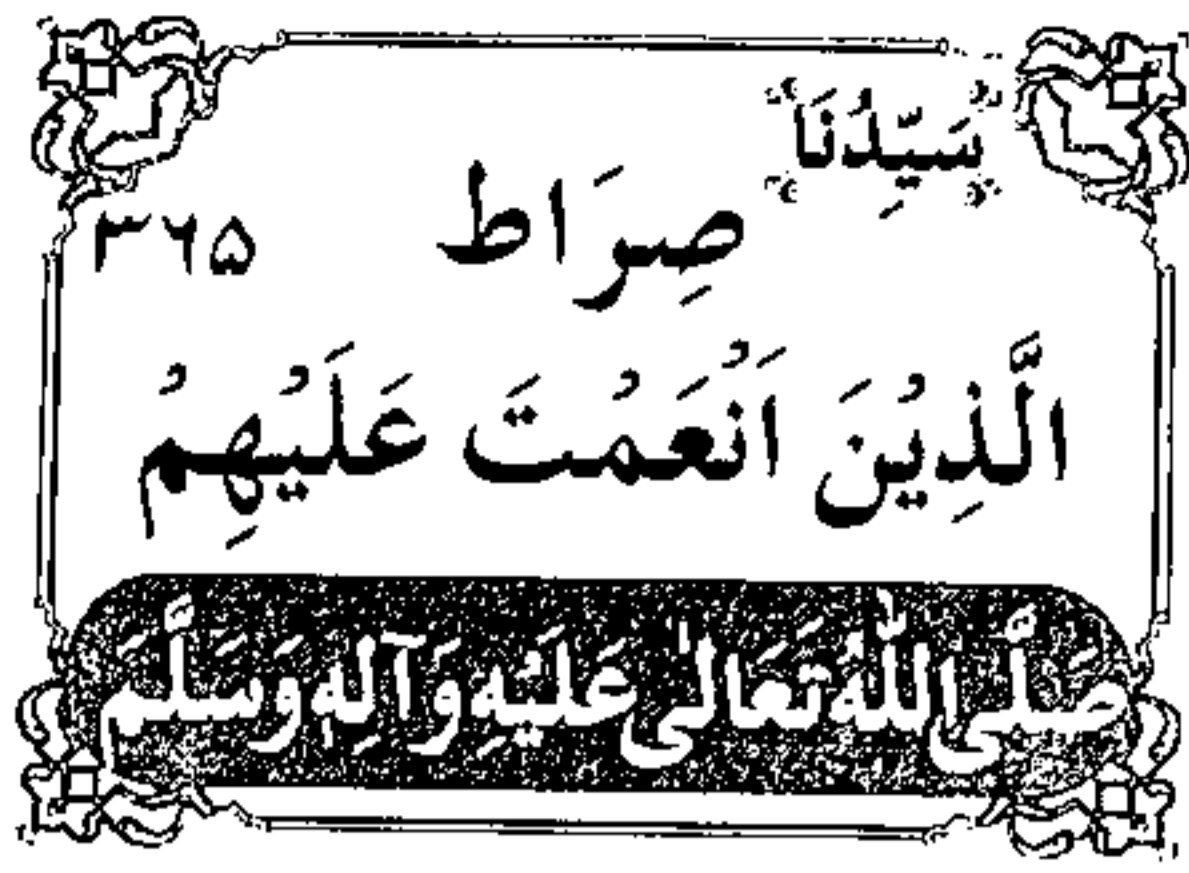 سَيِّدُنَا
صِرَاط ۳۶۵
الَّذِيْنَ اَنْعَمْتَ عَلَيْهِمْ
صَلَّى اللّٰهُ تَعَالٰى عَلَيْهِ وَآلِهٖ وَسَلَّمَ